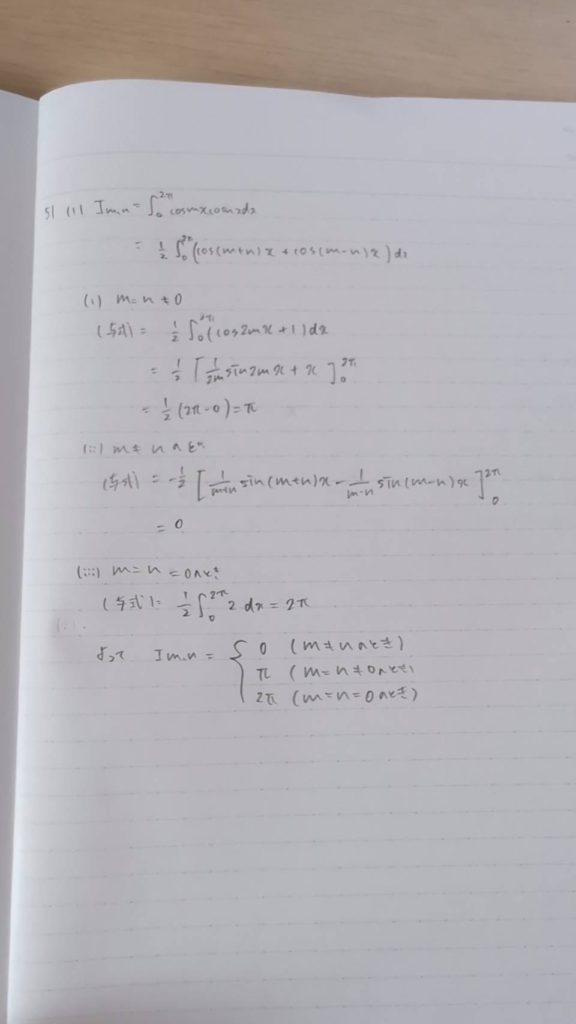 51 (1) Im,n = ∫₀^2π cosmx cosnx dx
= 1/2 ∫₀^2π (cos(m+n)x + cos(m-n)x) dx
(i) m = n ≠ 0
(与式) = 1/2 ∫₀^2π (cos2mx + 1) dx
= 1/2 [ 1/2m sin2mx + x ]₀^2π
= 1/2 (2π - 0) = π
(ii) m ≠ n のとき
(与式) = -1/2 [ 1/m+n sin(m+n)x - 1/m-n sin(m-n)x ]₀^2π
= 0
(iii) m = n = 0のとき
(与式) = 1/2 ∫₀^2π 2 dx = 2π
よって Im,n = { 0 (m ≠ n のとき)
π (m = n ≠ 0 のとき)
2π (m = n = 0 のとき)